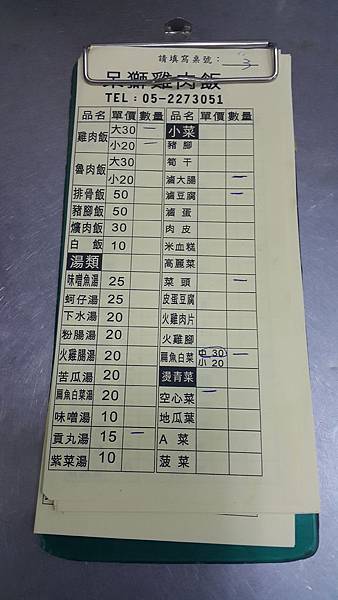 請填寫桌號： 3
呆獅雞肉飯
TEL：05-2273051
品名 單價 數量 品名 單價 數量
雞肉飯 大30 一 小菜
小20 一 豬腳
魯肉飯 大30 筍干
小20 滷大腸 一
排骨飯 50 滷豆腐 一
豬腳飯 50 滷蛋
爌肉飯 30 肉皮
白飯 10 米血糕
湯類 高麗菜
味噌魚湯 25 菜頭 一
蚵仔湯 25 皮蛋豆腐
下水湯 20 火雞肉片
粉腸湯 20 火雞腳
火雞腸湯 20 扁魚白菜 中30 一
小20
苦瓜湯 20 燙青菜
扁魚白菜湯 20 空心菜 一
味噌湯 10 地瓜葉
貢丸湯 15 一 A菜
紫菜湯 10 菠菜